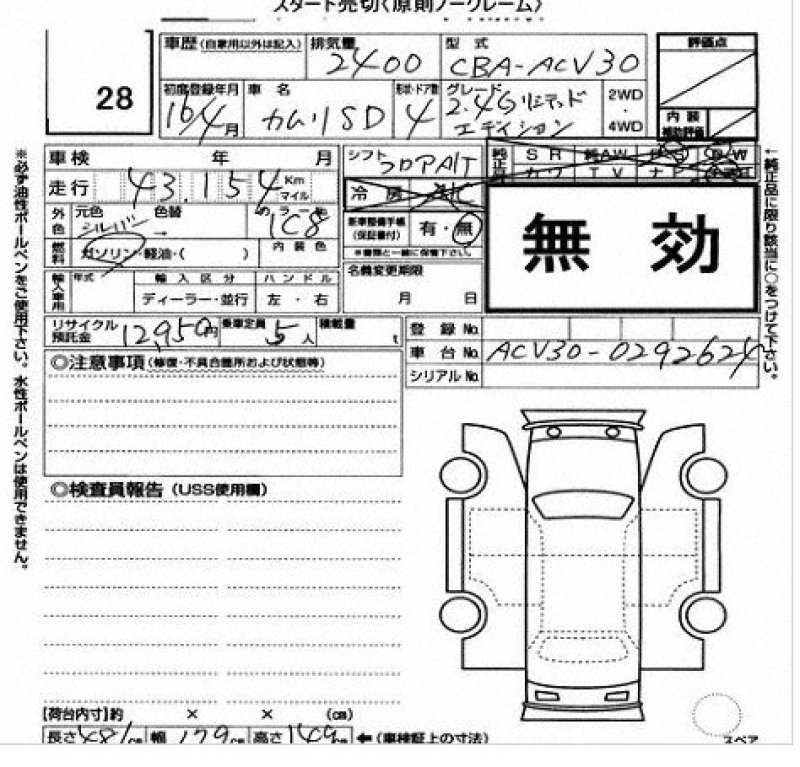 スタート売切(原則ノークレーム)
28
車歴(自家用以外は記入) 排気量 2400 型式 CBA-ACV30 評価点
初度登録年月 16/4月 車名 カムリSD 形状・ドア数 4 グレード 2.4G リミテッドエディション 2WD・4WD 内装補助評価
車検 年 月 シフト フロアA/T 純正品 SR 純AW PS PW
走行 43,154 Km マイル 冷房 カワ TV ナビ
外色 元色 シルバー 色替 → カラーNo 1C8 新車整備手帳(保証書付) 有・無
※書類と一緒に保管下さい。
燃料 ガソリン・軽油・( ) 内装色 名義変更期限 月 日
無効
輸入車用 年式 輸入区分 ディーラー・並行 ハンドル 左・右
リサイクル預託金 12,950円 乗車定員 5人 積載量 t 登録No.
車台No. ACV30-0292624
シリアルNo.
◎注意事項(修復・不具合箇所および状態等)
◎検査員報告(USS使用欄)
【荷台内寸】約 × × (cm)
長さ481cm 幅179cm 高さ149cm ←(車検証上の寸法)
スペア
※必ず油性ボールペンをご使用下さい。水性ボールペンは使用できません。
←純正品に限り該当に○をつけて下さい。